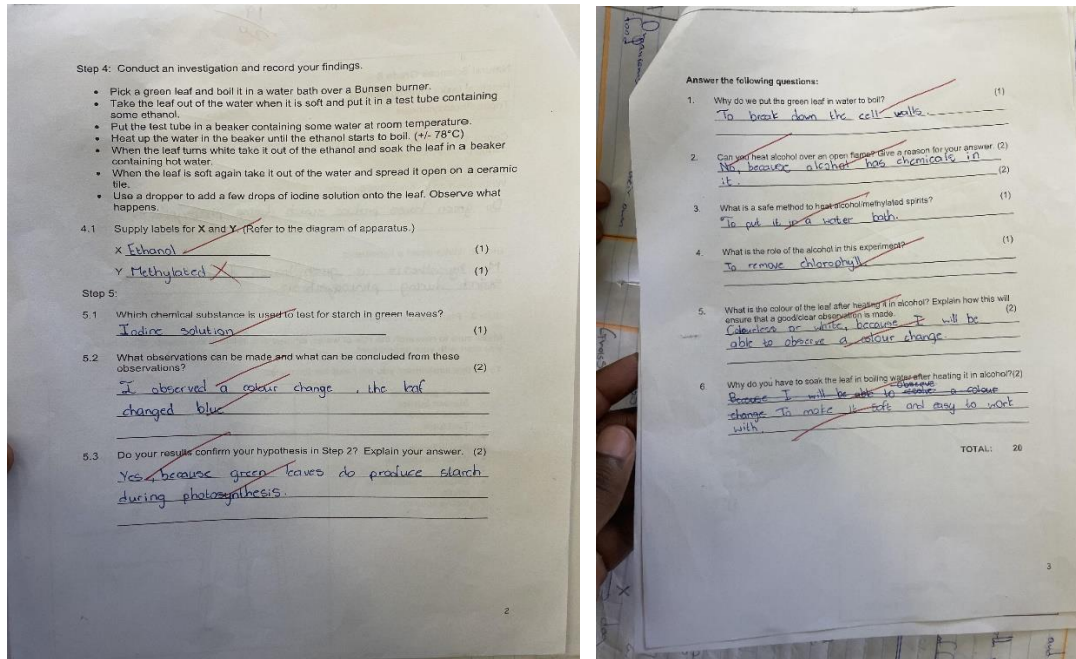 Step 4: Conduct an investigation and record your findings.
• Pick a green leaf and boil it in a water bath over a Bunsen burner.
• Take the leaf out of the water when it is soft and put it in a test tube containing
some ethanol.
• Put the test tube in a beaker containing some water at room temperature.
• Heat up the water in the beaker until the ethanol starts to boil. (+/- 78°C)
• When the leaf turns white take it out of the ethanol and soak the leaf in a beaker
containing hot water.
• When the leaf is soft again take it out of the water and spread it open on a ceramic
tile.
• Use a dropper to add a few drops of iodine solution onto the leaf. Observe what
happens.
4.1 Supply labels for X and Y. (Refer to the diagram of apparatus.)
X Ethanol (1)
Y Methylated (1)
Step 5:
5.1 Which chemical substance is used to test for starch in green leaves?
Iodine solution (1)
5.2 What observations can be made and what can be concluded from these
observations? (2)
I observed a colour change , the leaf
changed blue
5.3 Do your results confirm your hypothesis in Step 2? Explain your answer. (2)
Yes, because green leaves do produce starch
during photosynthesis.
2
Answer the following questions:
1. Why do we put the green leaf in water to boil? (1)
To break down the cell walls.
2. Can you heat alcohol over an open flame? Give a reason for your answer. (2)
No, because alcohol has chemicals in
it. (2)
3. What is a safe method to heat alcohol/methylated spirits? (1)
To put it in a water bath.
4. What is the role of the alcohol in this experiment? (1)
To remove chlorophyll
5. What is the colour of the leaf after heating it in alcohol? Explain how this will
ensure that a good/clear observation is made. (2)
Colourless or white, because I will be
able to observe a colour change.
6 Why do you have to soak the leaf in boiling water after heating it in alcohol?(2)
observe
Because I will be able to a colour
change To make it soft and easy to work
with.
TOTAL: 20
3